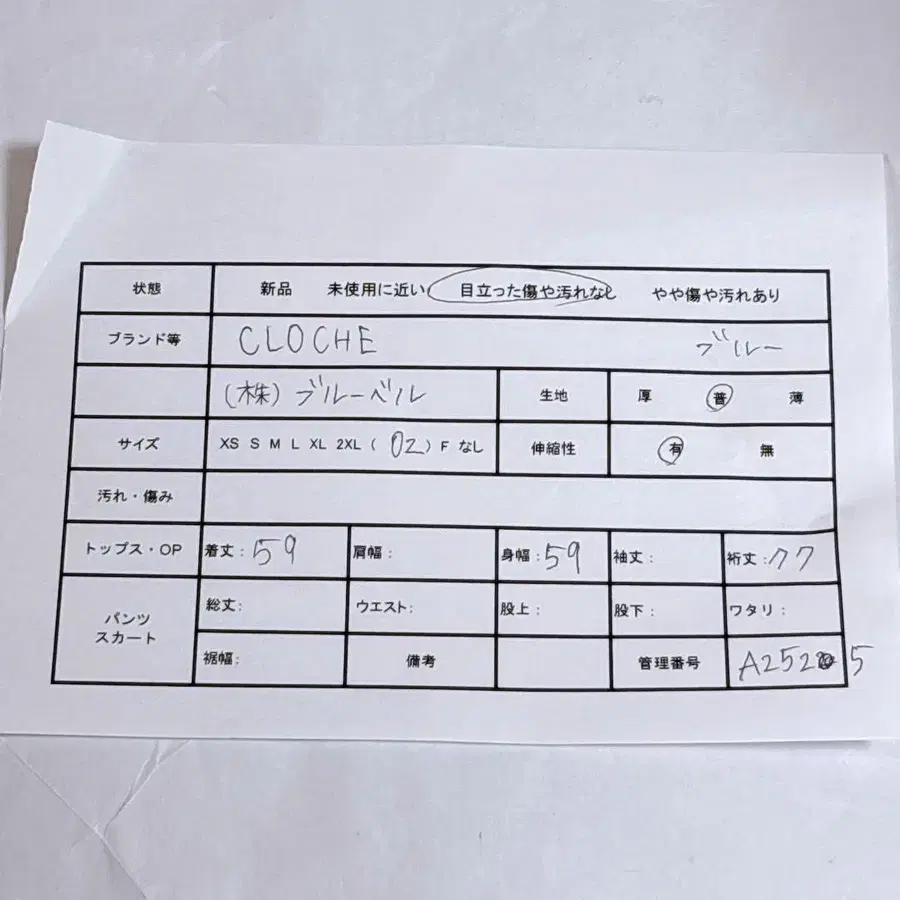 状態 新品 未使用に近い 目立った傷や汚れなし やや傷や汚れあり
ブランド等 CLOCHE ブルー
(株)ブルーベル 生地 厚 普 薄
サイズ XS S M L XL 2XL ( 02 ) F なし 伸縮性 有 無
汚れ・傷み
トップス・OP 着丈: 59 肩幅: 身幅: 59 袖丈: 裄丈: 77
パンツ スカート 総丈: ウエスト: 股上: 股下: ワタリ:
裾幅: 備考 管理番号 A252 5